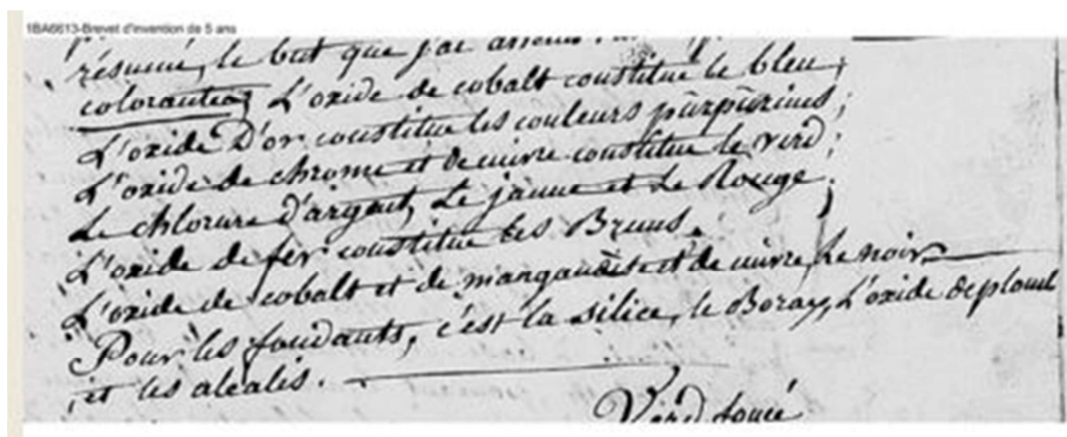 1BA6613-Brevet d'invention de 5 ans
résumé, le but que j'ai
colorantes, L'oxide de cobalt constitue le bleu;
L'oxide D'or constitue les couleurs purpurines;
L'oxide de chrome et de cuivre constitue le verd;
Le chlorure d'argent, Le jaune et Le Rouge;
L'oxide de fer constitue les Bruns.
L'oxide de cobalt et de manganèse et de cuivre, Le noir.
Pour les fondants, c'est la silice, le Borax, L'oxide de plomb
, et les alcalis.
Verd foncé